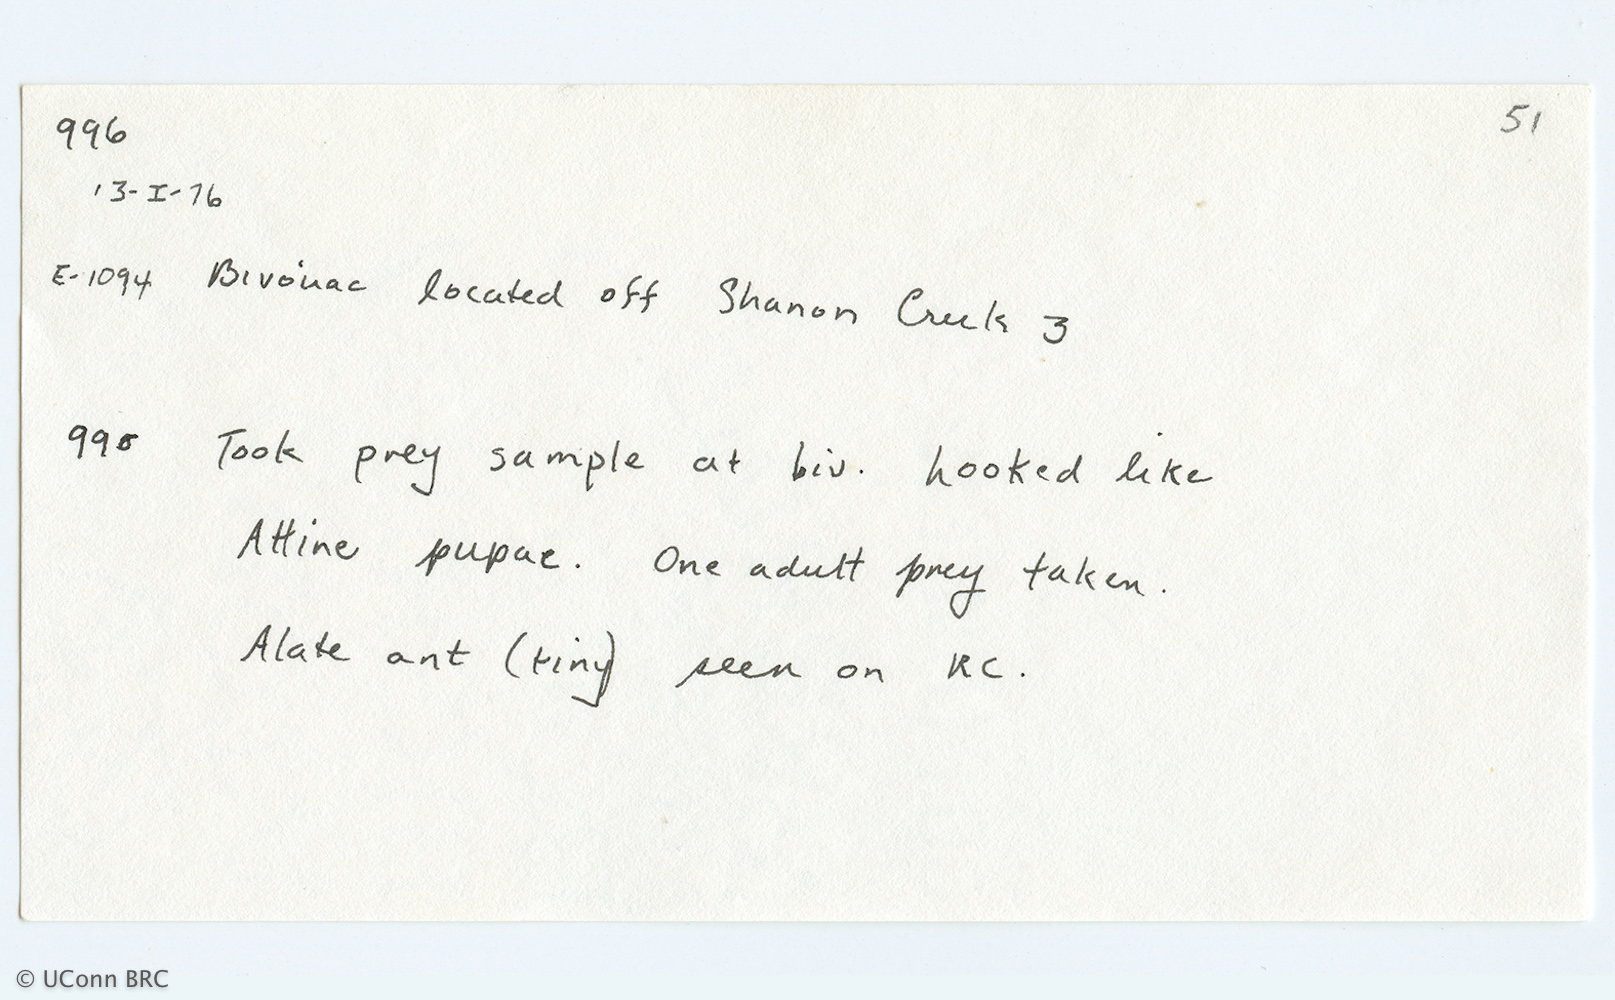 996
51
13-I-76
E-1094 Bivouac located off Shanon Creek 3
990 Took prey sample at biv. hooked like
Attine pupae. One adult prey taken.
Alate ant (tiny) seen on RC.
© UConn BRC